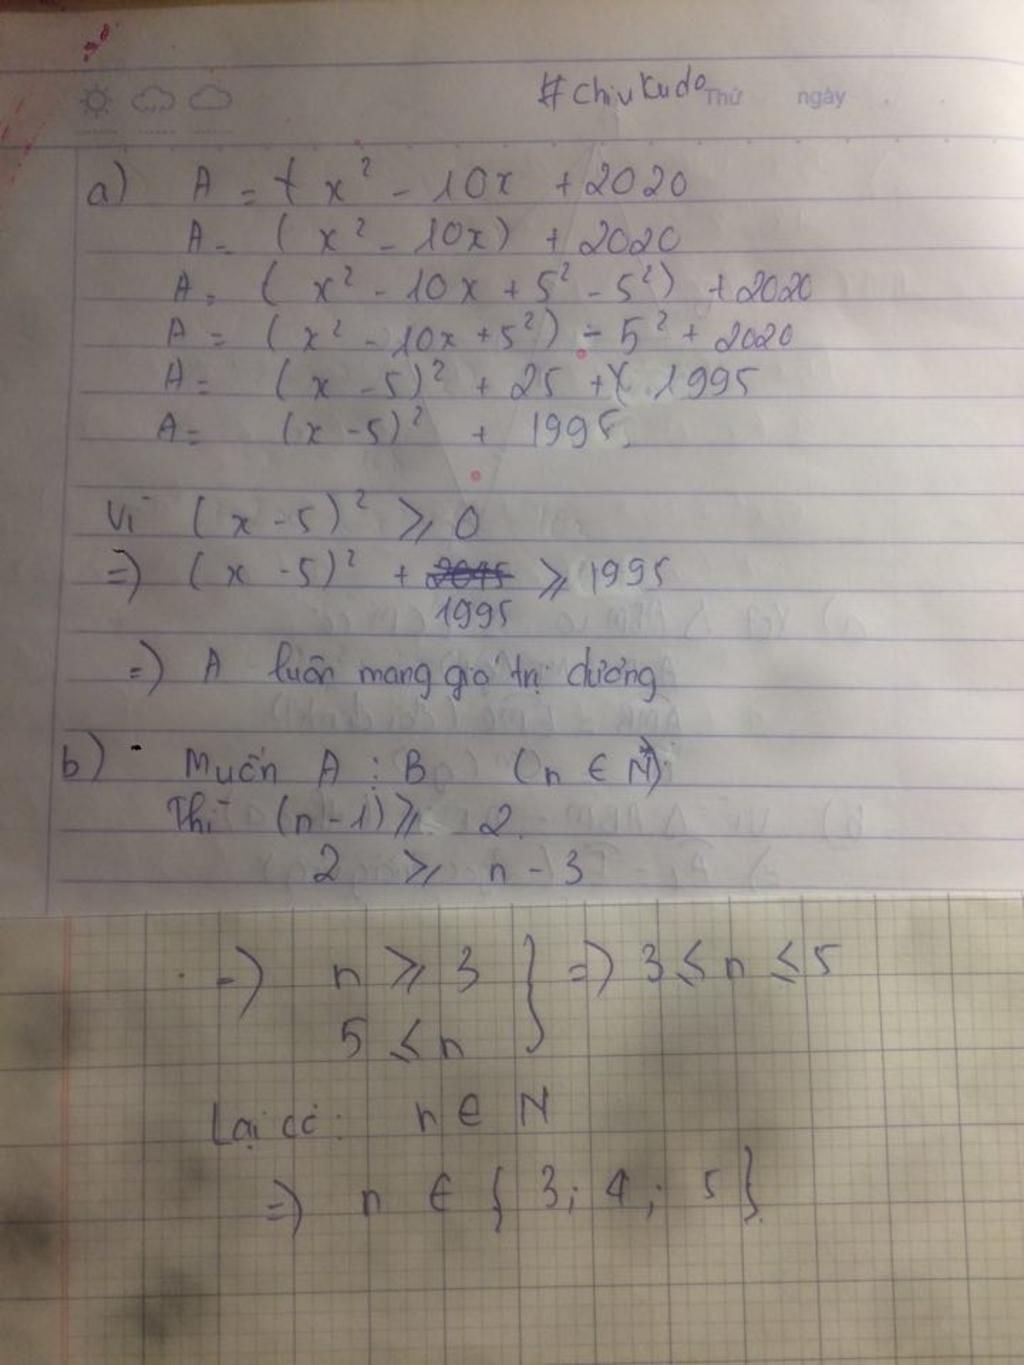 #chiukudo Thứ ngày
a) A = + x² - 10x + 2020
A = (x² - 10x) + 2020
A = (x² - 10x + 5² - 5²) + 2020
A = (x² - 10x + 5²) - 5² + 2020
A = (x - 5)² + 25 + 1995
A = (x - 5)² + 1995
Vì (x - 5)² ⩾ 0
=) (x - 5)² + ⩾ 1995
1995
=) A luôn mang giá trị dương
b) Muốn A : B (n ∈ N)
Thì (n - 1) ⩾ 2
2 ⩾ n - 3
=) n ⩾ 3 } =) 3 ≤ n ≤ 5
5 ≤ n
Lại có: n ∈ N
=) n ∈ { 3; 4; 5 }